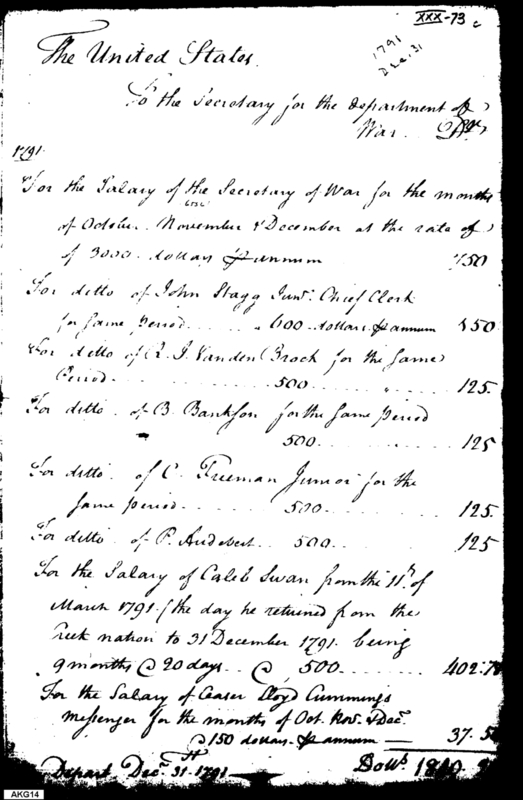 XXX-73 c
1791 Dec. 31
The United States.
To the Secretary for the department of
War Dr.
1791
For the Salary of the Secretary of War for the months
of October November & December at the rate of
of 3000 dollars ⅌ annum 750
For ditto of John Stagg Junr. Chief Clerk
for same period a 600 dollars ⅌ annum 150
For ditto of R. J. Vanden Brock for the same
Period 500 " 125.
For ditto of B. Bankson for the same period
500 125
For ditto of C. Freeman Junior for the
same period 500 125.
For ditto of P. Audebert 500 125
For the Salary of Caleb Swan from the 11th of
March 1791 (the day he returned from the
Creek nation to 31 December 1791. being
9 months @ 20 days @ 500 402.78
For the Salary of Ceaser Lloyd Cummings
messenger for the months of Oct. Nov. & Decr.
@ 150 dollars ⅌ annum 37.50
Depart Decr. 31st 1791 Dolls. 1840.
AKG14